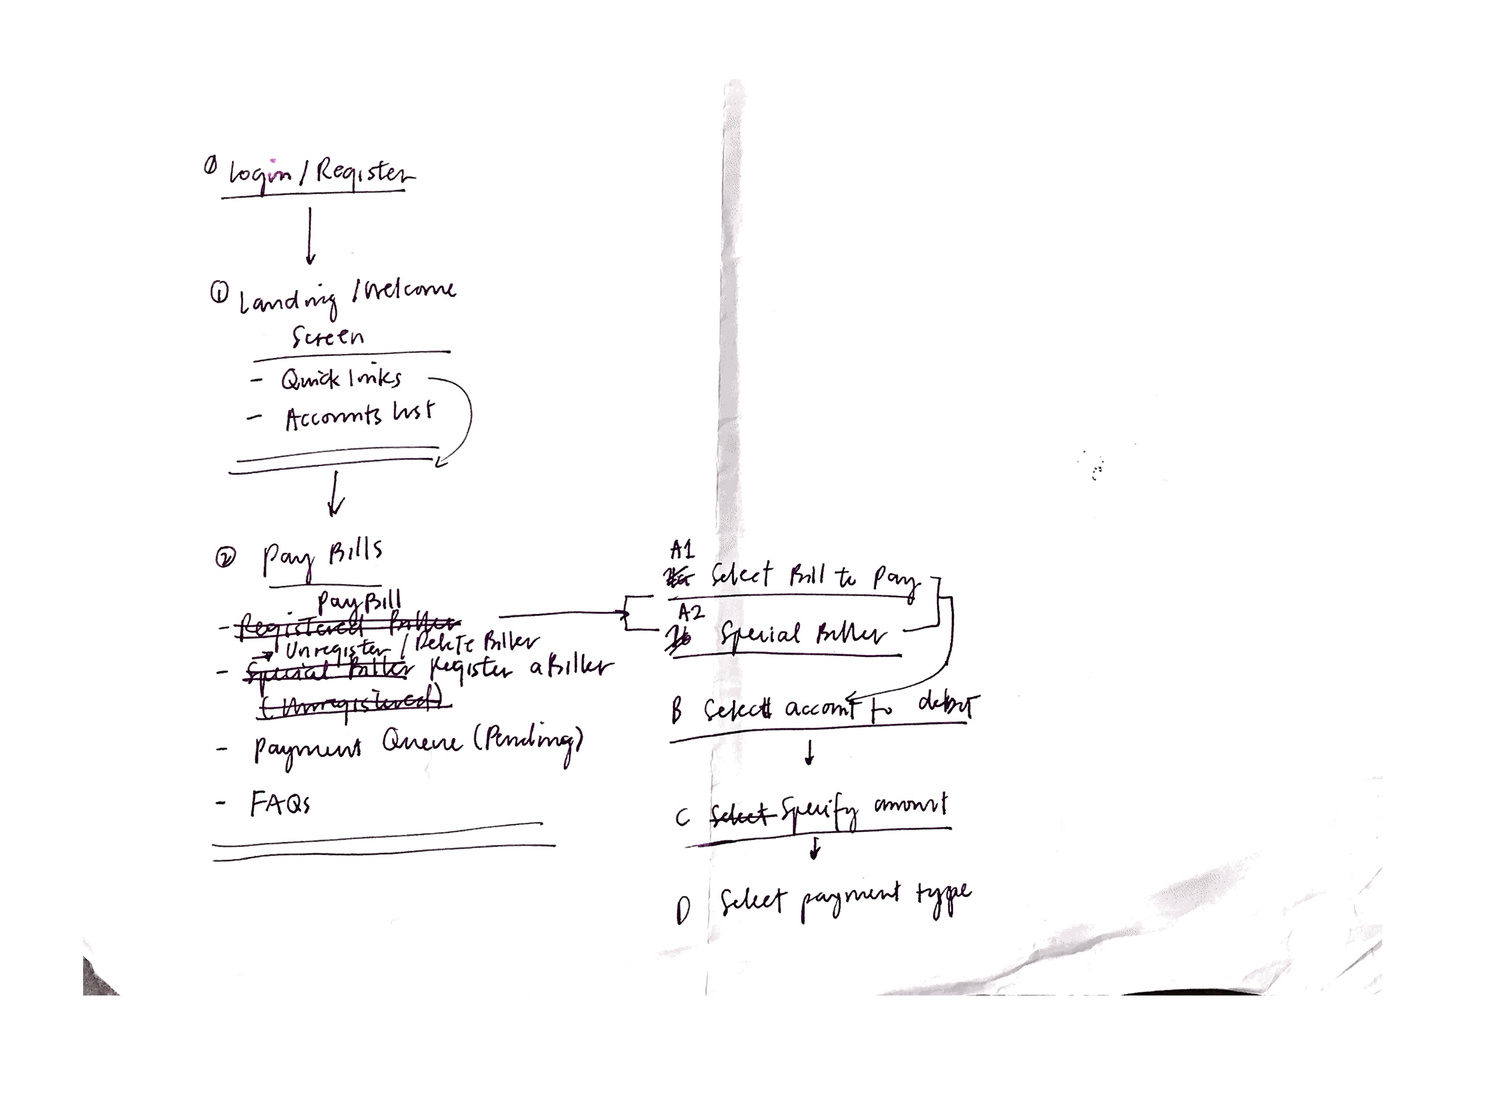 0 Login / Register
① Landing / Welcome
Screen
- Quick links
- Accounts list
② Pay Bills
Pay Bill
- Registered Biller
→ Unregister / Delete Biller
- Special Biller Register a Biller
(Unregistered)
- Payment Queue (Pending)
- FAQs
A1
Select Bill to Pay
A2
Special Biller
B Select account to debit
C Select Specify amount
D Select payment type